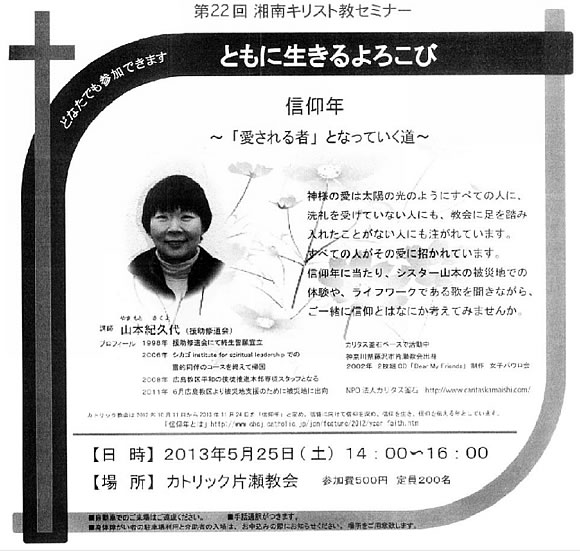 第22回 湘南キリスト教セミナー
どなたでも参加できます
ともに生きるよろこび
信仰年
～「愛される者」となっていく道～
神様の愛は太陽の光のようにすべての人に、
洗礼を受けていない人にも、教会に足を踏み
入れたことがない人にも注がれています。
すべての人がその愛に招かれています。
信仰年に当たり、シスター山本の被災地での
体験や、ライフワークである歌を聞きながら、
ご一緒に信仰とはなにか考えてみませんか。
やまもと きくよ
講師 山本紀久代（援助修道会）
プロフィール 1998年 援助修道会にて終生誓願宣立
2006年 シカゴ institute for spiritual leadership での
霊的同伴のコースを終えて帰国
2008年 広島教区平和の使徒推進本部専従スタッフとなる
2011年 6月広島教区より被災地支援のために被災地に出向
カリタス釜石ベースで活動中
神奈川県藤沢市片瀬教会出身
2002年 2枚組CD「Dear My Friends」制作 女子パウロ会
NPO法人カリタス釜石 http://www.caritaskamaishi.com/
カトリック教会は2012年10月11日から2013年11月24日まで「信仰年」と定め、
「信仰年とは」http://www.cbcj.catholic.jp/jpn/feature/2012/year_faith.htm
【日 時】 2013年5月25日（土） 14：00～16：00
【場 所】 カトリック片瀬教会 参加費500円 定員200名
■自動車でのご来場はご遠慮ください。 ■手話通訳がつきます。
■身体障がい者の駐車場利用と介助者の入場は、お申込みの際にお知らせください。場所をご用意致します。